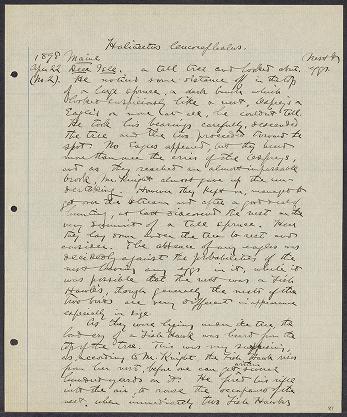 Haliaetus leucocephalus.
1898 Maine (Nest &
April 22 Deer Isle. a tall tree and looked about. eggs.
(No. 2). He noticed some distance off in the top
of a large spruce, a dark bunch which
looked suspiciously like a nest, Osprey's or
Eagle's or some hawk's, he couldn't tell.
He took his bearings carefully, descended
the tree and the two proceeded toward the
spot. No Eagles appeared, but they heard
more than once the cries of the Ospreys,
and as they reached an almost impassable
brook, Mr. Knight almost gave up the
undertaking. However they kept on, managed to
get over the stream and after a good deal of
hunting, at last discovered the nest on the
very summit of a tall spruce. Here
they lay down under the tree to rest and
consider. The absence of any eagles was
decidedly against the probabilities of the
nest having any eggs in it, while it
was possible that the nest was a Fish
Hawk's, though generally the nests of the
two birds are very different in appearance
especially in size.
As they were lying under the tree, the
low cry of a Fish Hawk was heard from the
top of the tree. This was very surprising,
as, according to Mr. Knight, the Fish Hawk rises
from her nest, before one can get within several
hundred yards of it. He fired his rifle
into the air, to rouse the occupant of the
nest, when immediately two Fish Hawks